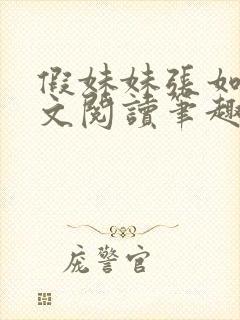 假妹妹張如
文閱讀筆趣
庞警官